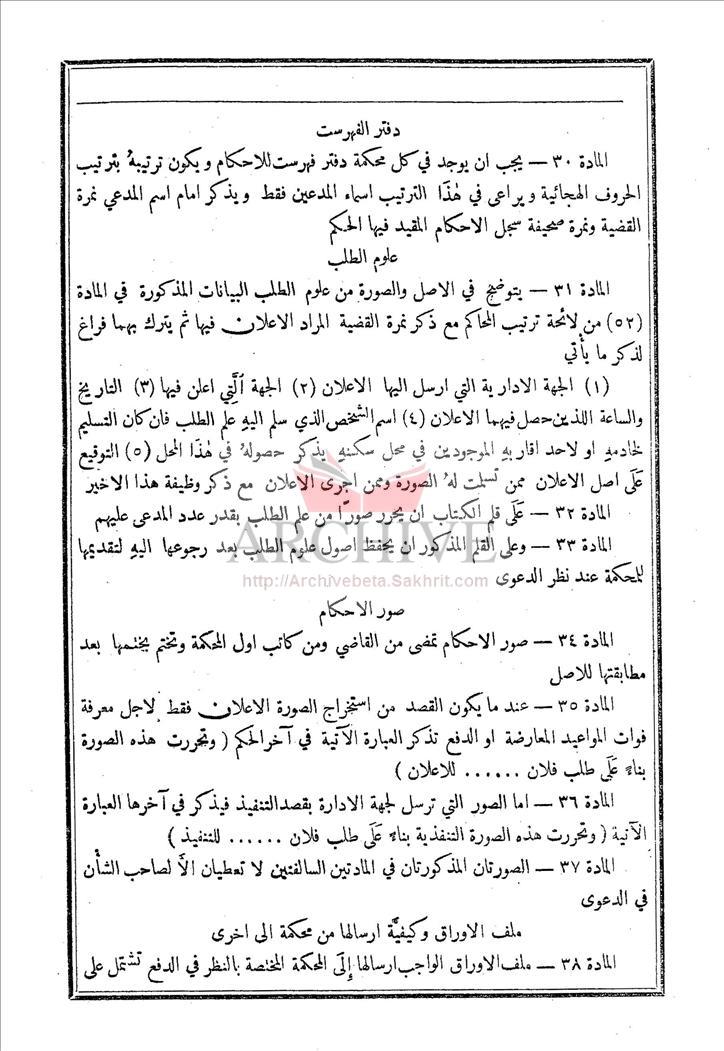 دفتر الفهرست
المادة ٣٠ — يجب ان يوجد في كل محكمة دفتر فهرست للاحكام ويكون ترتيبهُ بترتيب
الحروف الهجائية ويراعى في هٰذَا الترتيب اسماء المدعين فقط ويذكر امام اسم المدعي نمرة
القضية ونمرة صحيفة سجل الاحكام المقيد فيها الحكم
علوم الطلب
المادة ٣١ — يتوضح في الاصل والصورة من علوم الطلب البيانات المذكورة في المادة
(٥٢) من لائحة ترتيب المحاكم مع ذكر نمرة القضية المراد الاعلان فيها ثم يترك بهما فراغ
لذكر ما يأتي
(١) الجهة الادارية التي ارسل اليها الاعلان (٢) الجهة الَّتِي اعلن فيها (٣) التاريخ
والساعة اللذين حصل فيهما الاعلان (٤) اسم الشخص الذي سلم اليهِ علم الطلب فان كان التسليم
لخادمهِ او لاحد اقاربهِ الموجودين في محل سكنهِ يذكر حصولهُ في هٰذَا المحل (٥) التوقيع
عَلَى اصل الاعلان ممن تسلمت لهُ الصورة وممن اجرى الاعلان مع ذكر وظيفة هذا الاخير
المادة ٣٢ — عَلَى قلم الكتاب ان يحرر صورًا من علم الطلب بقدر عدد المدعى عليهم
المادة ٣٣ — وعلى القلم المذكور ان يحفظ اصول علوم الطلب بعد رجوعها اليهِ لتقديمها
للمحكمة عند نظر الدعوى
ARCHIVE
http://Archivebeta.Sakhrit.com
صور الاحكام
المادة ٣٤ — صور الاحكام تمضى من القاضي ومن كاتب اول المحكمة وتختم بختمها بعد
مطابقتها للاصل
المادة ٣٥ — عند ما يكون القصد من استخراج الصورة الاعلان فقط لاجل معرفة
فوات المواعيد المعارضة او الدفع تذكر العبارة الآتية في آخر الحكم ( وتحررت هذه الصورة
بناءً عَلَى طلب فلان ...... للاعلان )
المادة ٣٦ — اما الصور التي ترسل لجهة الادارة بقصد التنفيذ فيذكر في آخرها العبارة
الآتية ( وتحررت هذه الصورة التنفذية بناءً عَلَى طلب فلان ...... للتنفيذ )
المادة ٣٧ — الصورتان المذكورتان في المادتين السالفتين لا تعطيان الاَّ لصاحب الشأن
في الدعوى
ملف الاوراق وكيفيَّة ارسالها من محكمة الى اخرى
المادة ٣٨ — ملف الاوراق الواجب ارسالها إِلَى المحكمة المختصة بالنظر في الدفع تشتمل على